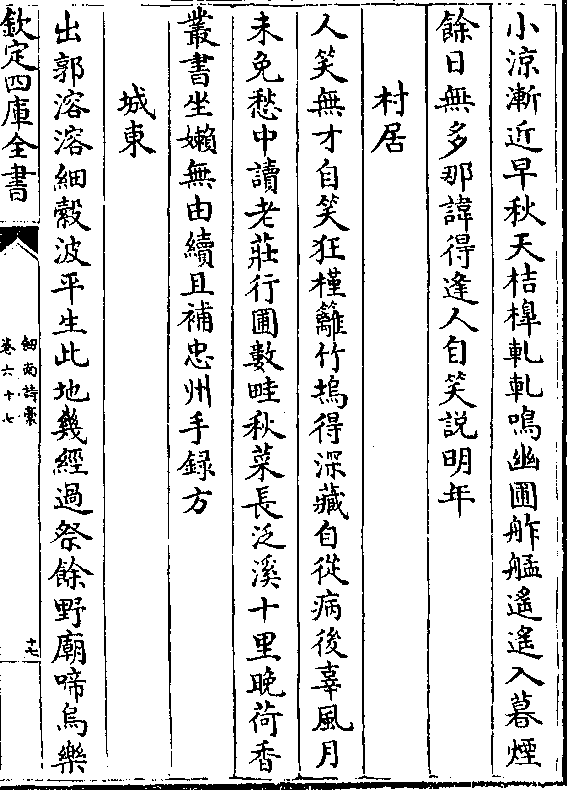 小涼漸近早秋天桔槹軋軋鳴幽圃舴艋遙遙入暮煙
餘日無多那諱得逢人自笑説明年
村居
人笑無才自笑狂槿籬竹塢得深藏自從病後辜風月
未免愁中讀老莊行圃數畦秋菜長泛溪十里晚荷香
叢書坐嬾無由續且補忠州手録方
城東
出郭溶溶細縠波平生此地幾經過祭餘野廟啼烏樂
欽定四庫全書
劒南詩稾
卷六十七
十七